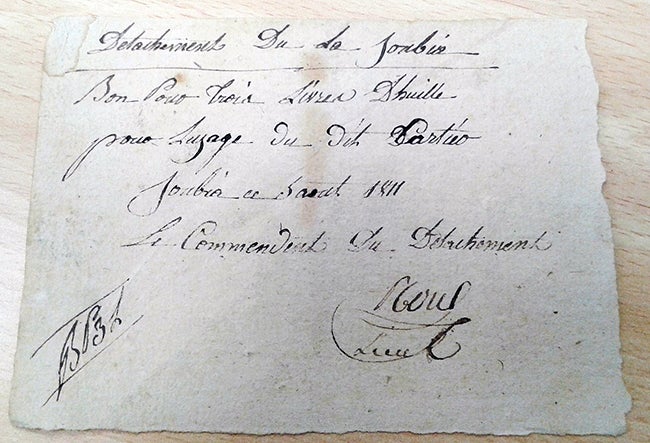 Detachement Du La Joubia
Bon Pour Trois Livres Dhuille
pour Luzage du dit Cartier
Joubia ce 5 aout 1811
Le Commendent Du Detachement
Lieut
BP3L